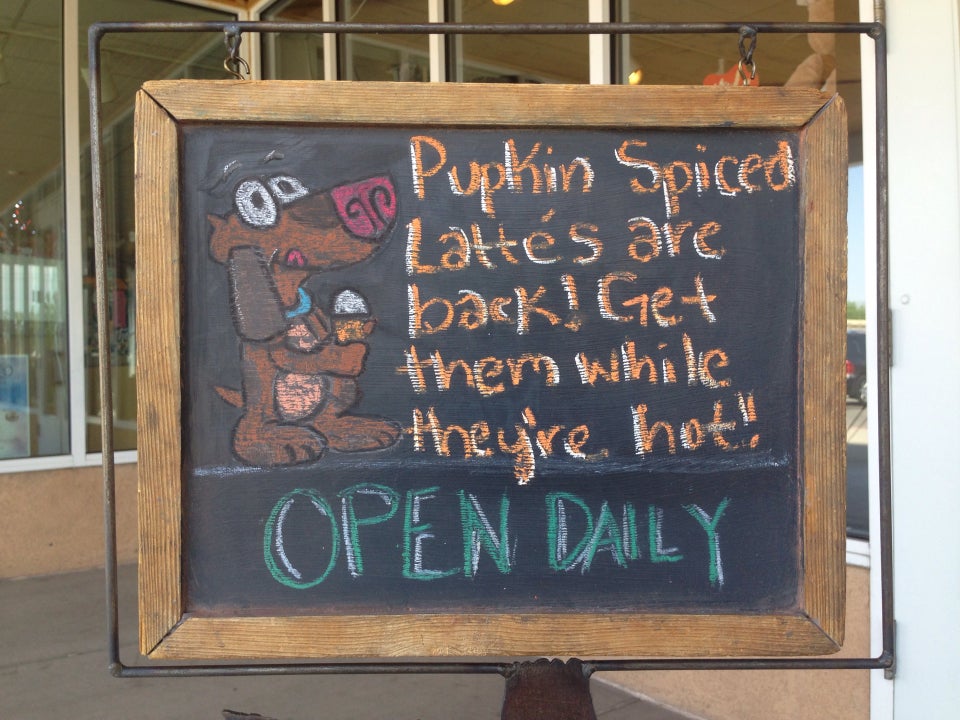 Pupkin Spiced
Latté's are
back! Get
them while
they're hot!!
OPEN DAILY